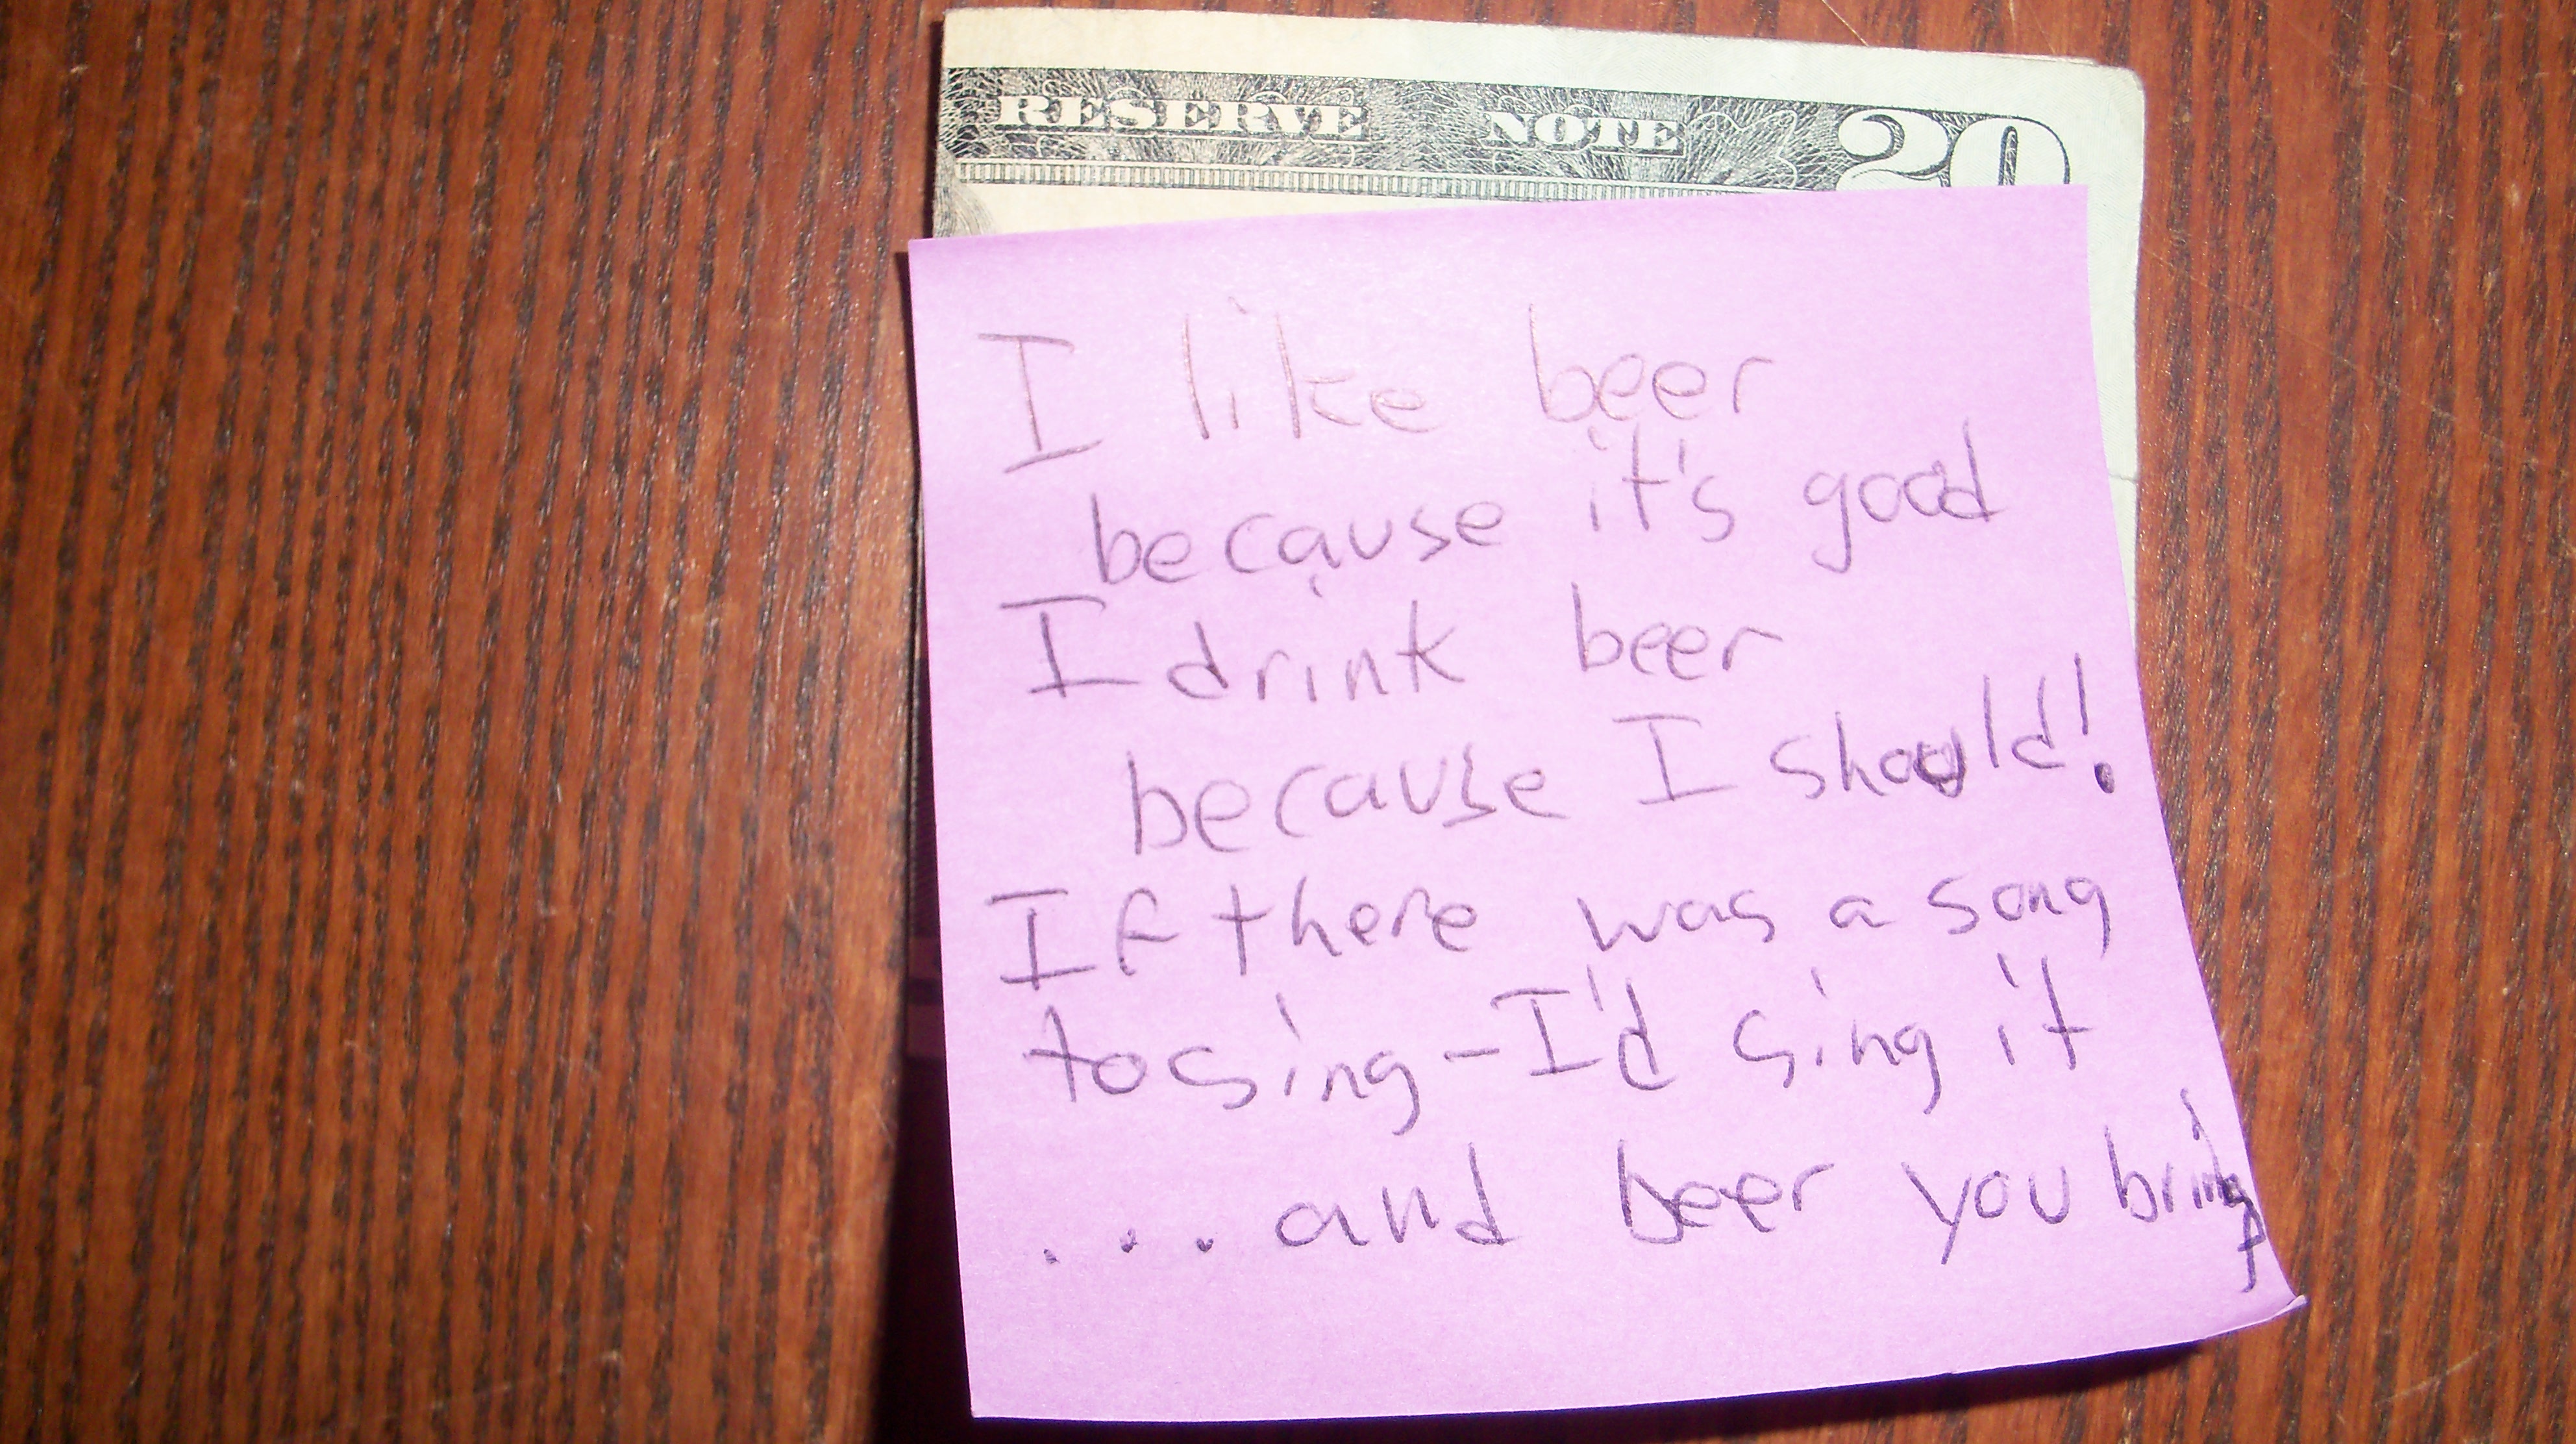 RESERVE NOTE 20
I like beer
because it's good
I drink beer
because I should!
If there was a song
to sing - I'd sing it
... and beer you bring